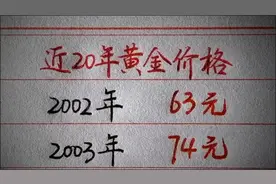 近20年黄金价格
2002年 63元
2003年 74元